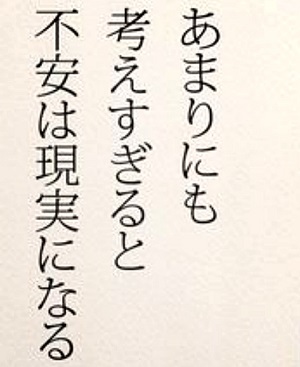 あまりにも
考えすぎると
不安は現実になる